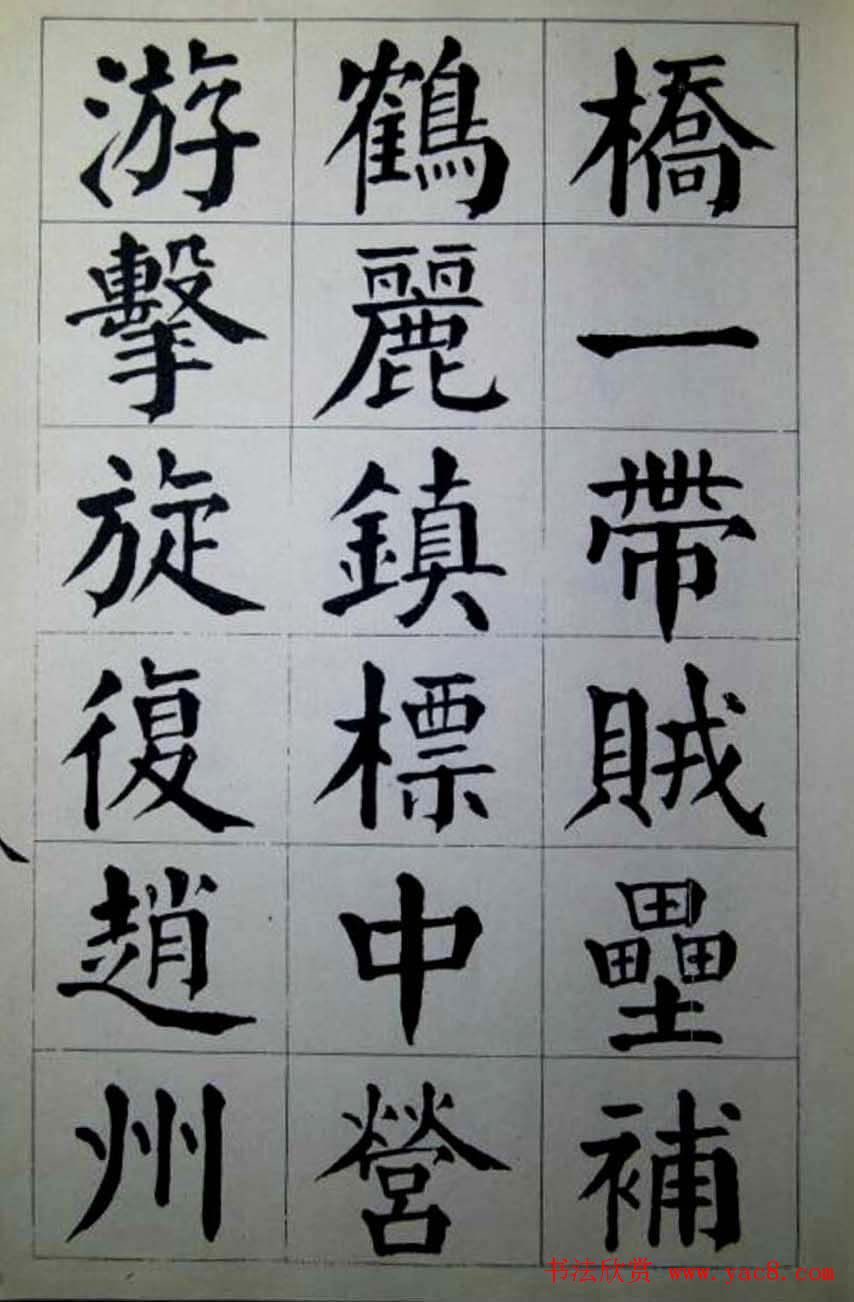 橋一帶賊壘補
鶴麗鎮標中營
游擊旋復趙州
书法欣赏 www.yac8.com